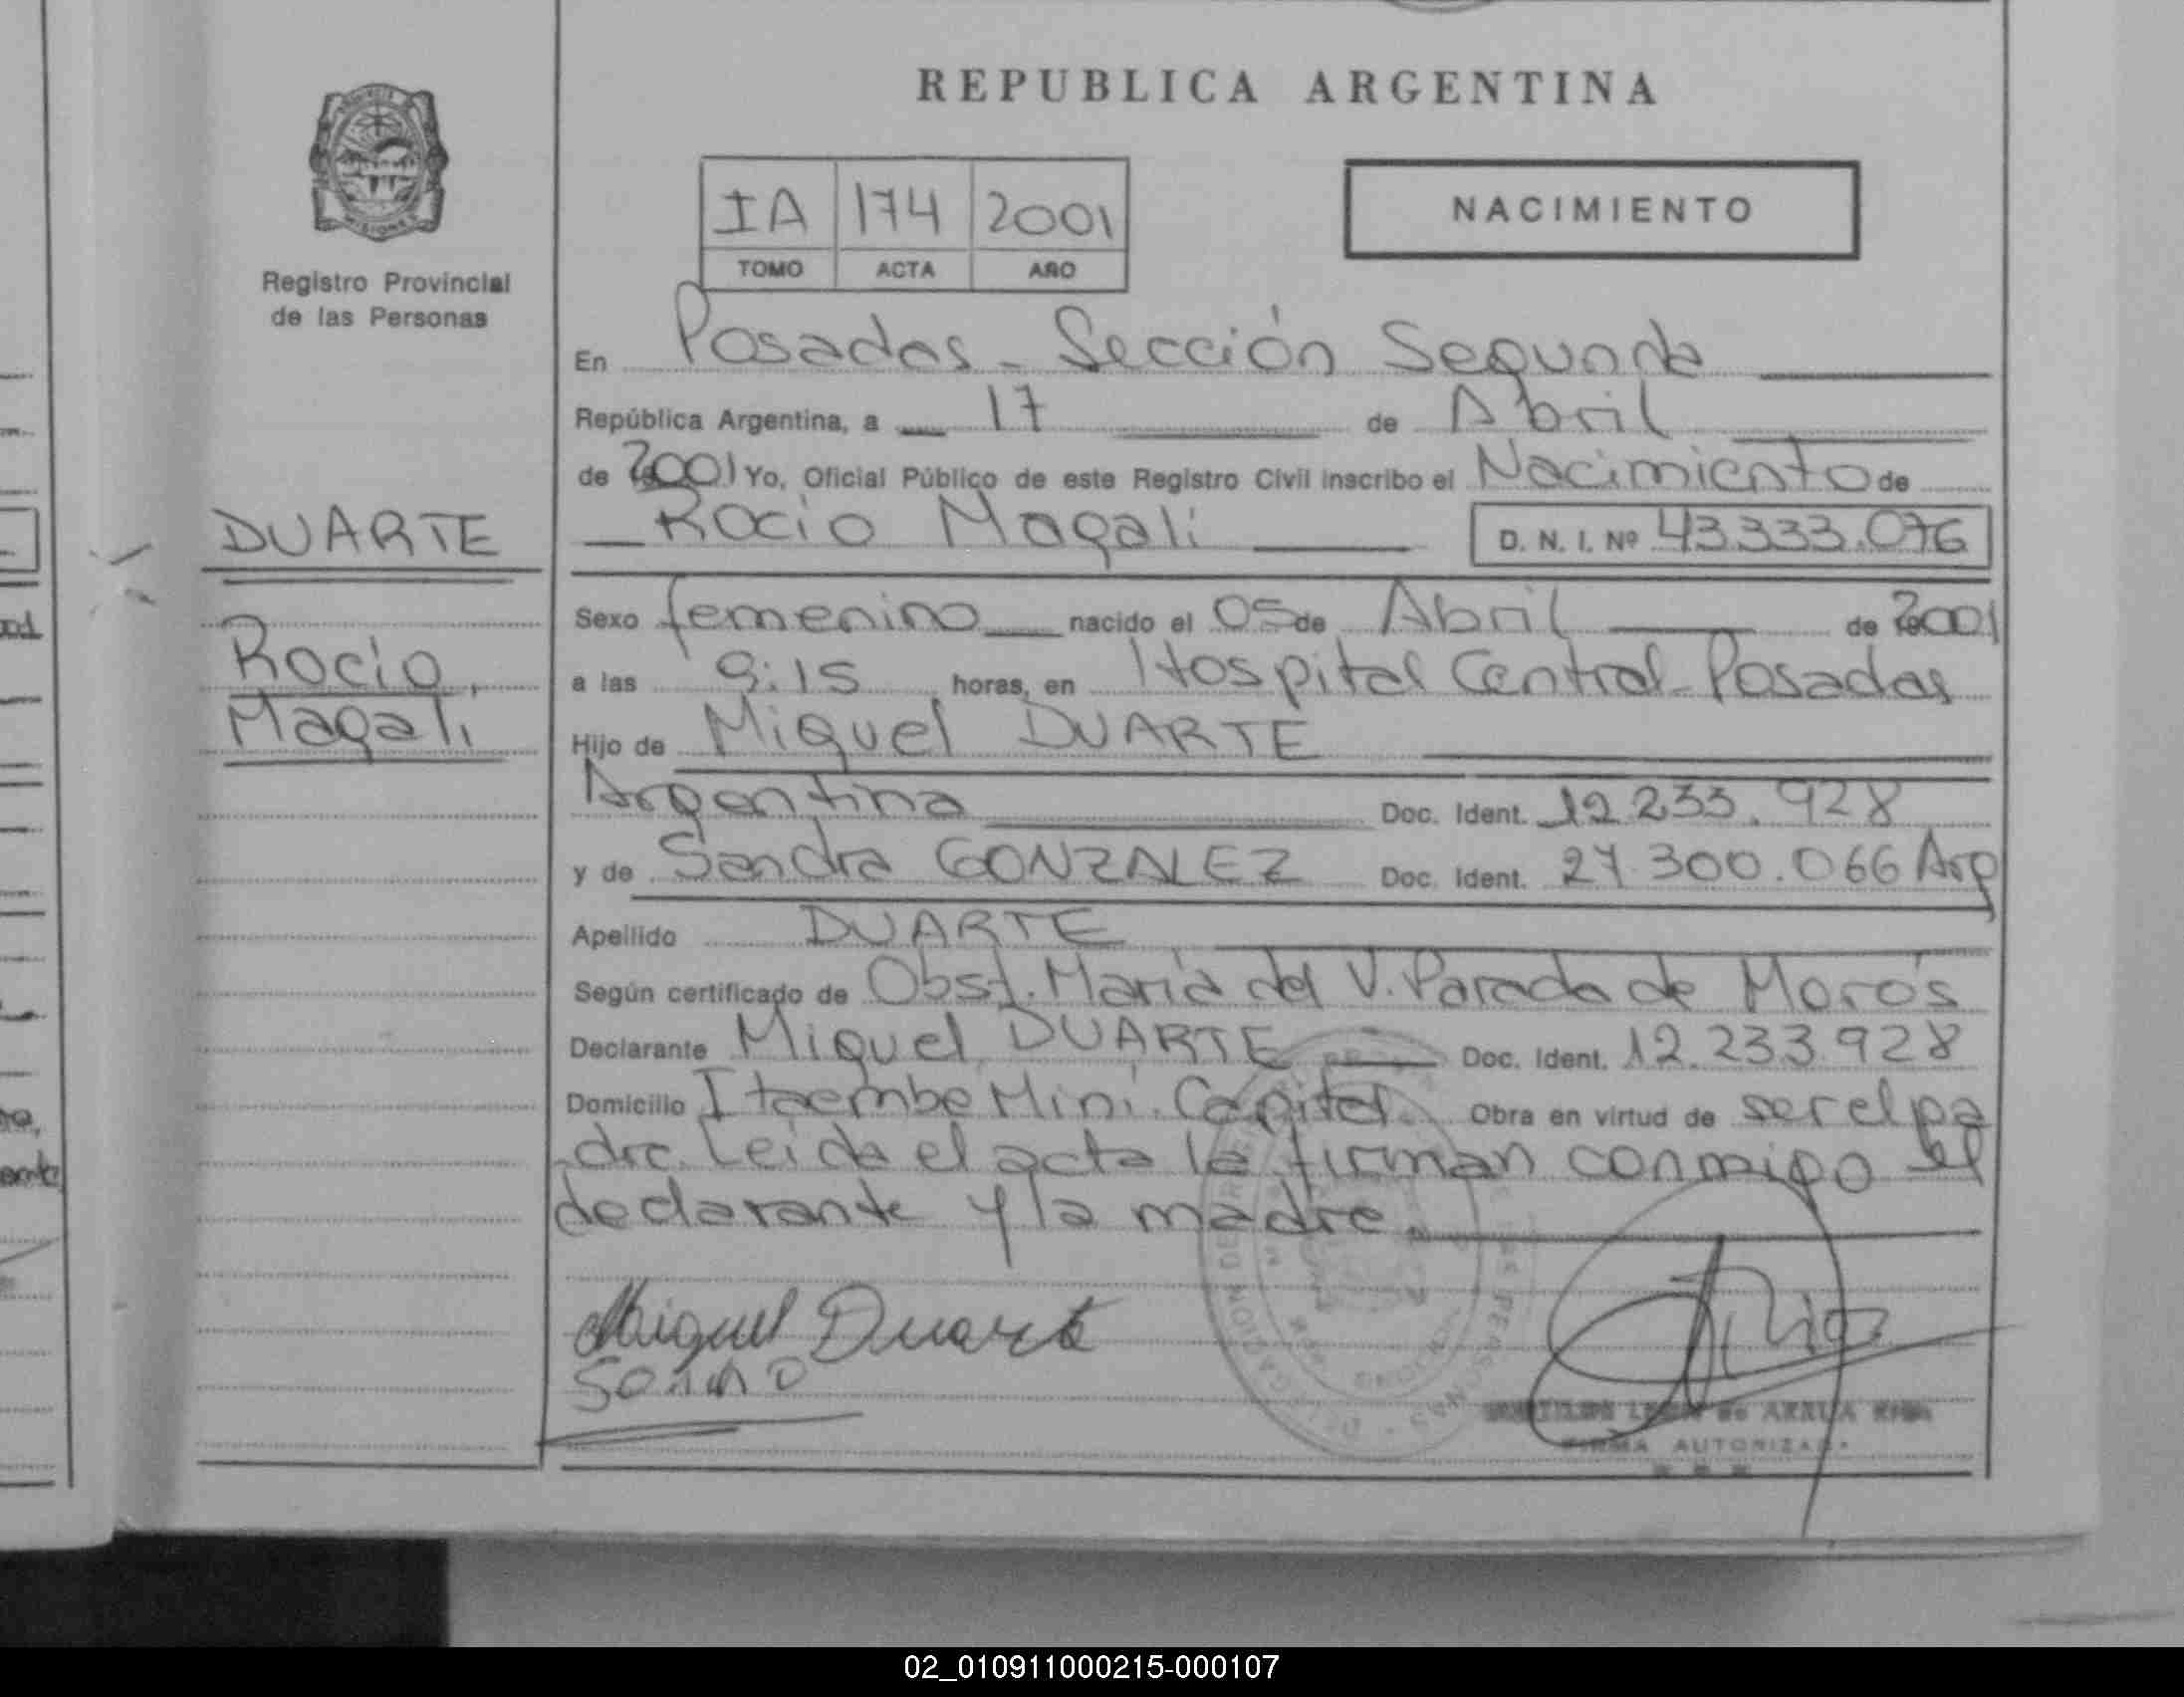 REPUBLICA ARGENTINA
IA 174 2001
TOMO ACTA AÑO
NACIMIENTO
Registro Provincial
de las Personas
DUARTE
Rocio
Magali
En Posadas - Sección Segunda
República Argentina, a 17 de Abril
de 2001 Yo, Oficial Público de este Registro Civil inscribo el Nacimiento de
Rocio Magali D. N. I. Nº 43.333.076
Sexo femenino nacido el 05 de Abril de 2001
a las 9:15 horas, en Hospital Central - Posadas
Hijo de Miguel DUARTE
Argentina Doc. Ident. 12.233.928
y de Sandra GONZALEZ Doc. Ident. 27.300.066 Arg
Apellido DUARTE
Según certificado de Obst. María del V. Parada de Morós
Declarante Miguel DUARTE Doc. Ident. 12.233.928
Domicilio Itaembe Mini. Capital. Obra en virtud de ser el pa
dre. Leida el acta la firman conmigo el
declarante y la madre.
Miguel Duarte
FIRMA AUTORIZADA
02_010911000215-000107